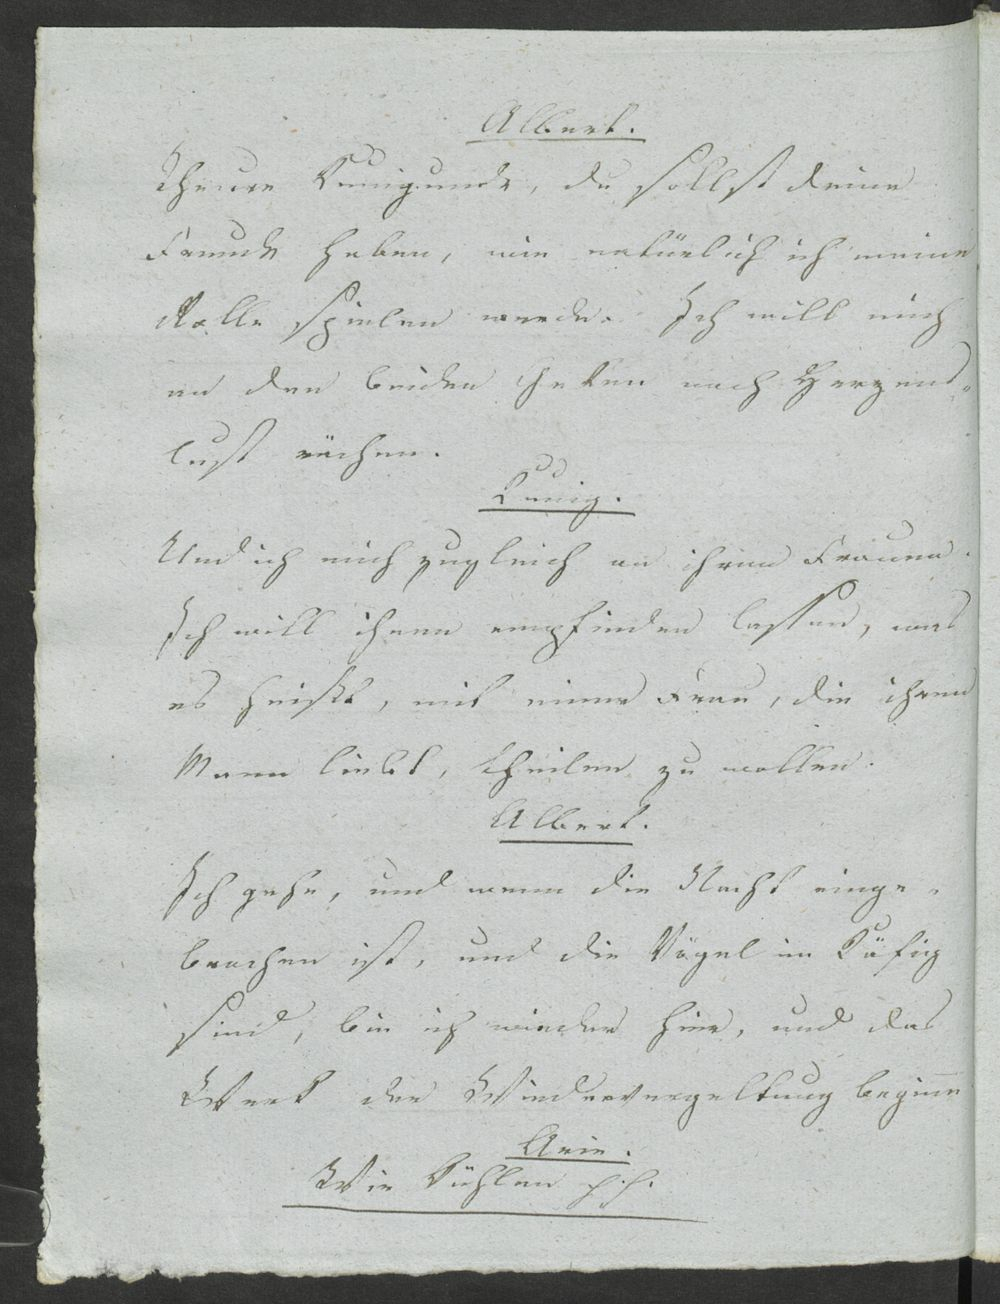 Albert.
Theure Kunigunde, du sollst deine
Freude haben, wie natürlich ich meine
Rolle spielen werde. Ich will mich
an den beiden Gecken nach Herzens-
lust rächen.
Kunig.
Und ich mich zugleich an ihren Frauen.
Ich will ihnen empfinden lassen, was
es heißt, mit einer Frau, die ihren
Mann liebt, theilen zu wollen.
Albert.
Ich gehe, und wenn die Nacht einge-
brochen ist, und die Vögel im Käfig
sind, bin ich wieder hier, und das
Werk der Wiedervergeltung beginne
Arie.
Wie